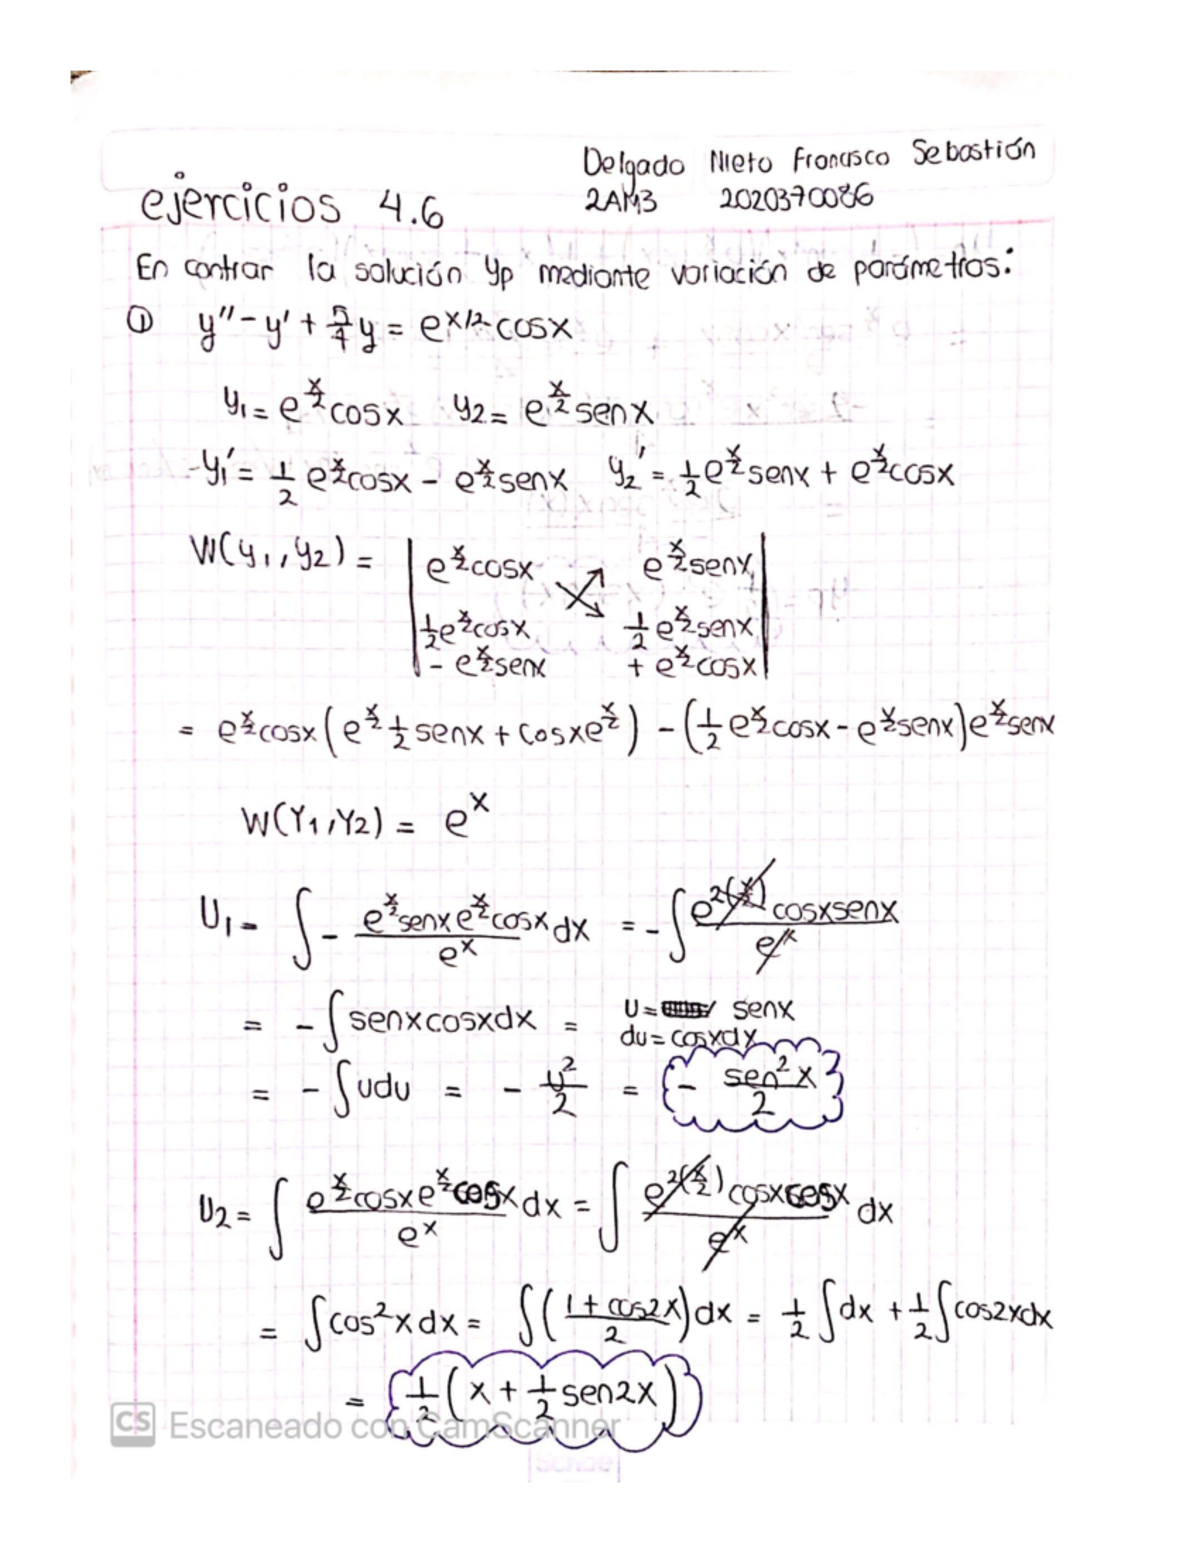 Delgado Nieto Francisco Sebastián
ejercicios 4.6 2AM3 2020370086
En contrar la solución yp mediante variación de parámetros:
① y'' - y' + 5/4 y = e^{x/2} cosx
y₁ = e^{x/2} cosx y₂ = e^{x/2} senx
-y₁' = 1/2 e^{x/2} cosx - e^{x/2} senx y₂' = 1/2 e^{x/2} senx + e^{x/2} cosx
W(y₁, y₂) = | e^{x/2} cosx e^{x/2} senx |
| 1/2 e^{x/2} cosx 1/2 e^{x/2} senx |
| - e^{x/2} senx + e^{x/2} cosx |
= e^{x/2} cosx ( e^{x/2} 1/2 senx + cosx e^{x/2} ) - ( 1/2 e^{x/2} cosx - e^{x/2} senx ) e^{x/2} senx
W(Y₁, Y₂) = e^x
U₁ = ∫ - (e^{x/2} senx e^{x/2} cosx)/(e^x) dx = - ∫ (e^{2(x/2)} cosx senx)/(e^x)
= - ∫ senx cosx dx = U = senx
du = cosx dx
= - ∫ u du = - u²/2 = - sen²x/2
U₂ = ∫ (e^{x/2} cosx e^{x/2} cosx)/(e^x) dx = ∫ (e^{2(x/2)} cosx cosx)/(e^x) dx
= ∫ cos²x dx = ∫ ((1 + cos2x)/2) dx = 1/2 ∫ dx + 1/2 ∫ cos2x dx
= 1/2 ( x + 1/2 sen2x )
CS Escaneado con CamScanner